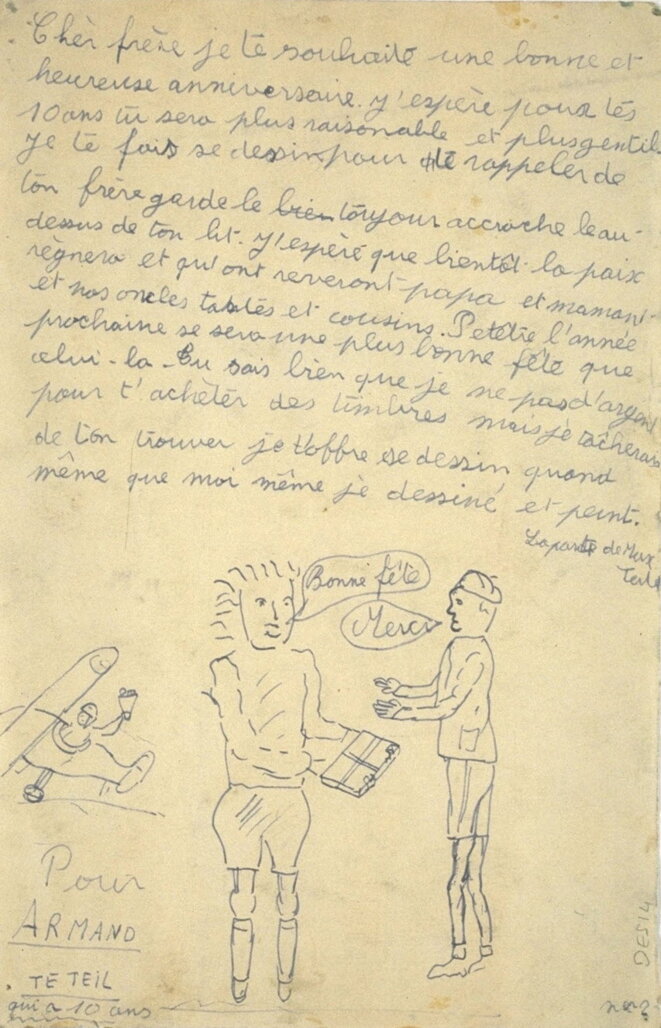 Cher frère je te souhaite une bonne et
heureuse anniversaire. J'espère pour tes
10ans tu sera plus raisonable et plus gentil.
Je te fais se dessin pour te rappeler de
ton frère garde le bien toujour accroche le au-
dessus de ton lit. J'espère que bientôt la paix
règnera et qu'ont reveront papa et maman
et nos oncles tantes et cousins. Petetre l'année
prochaine se sera une plus bonne fête que
celui-la. Tu sais bien que je ne pas d'argent
pour t'achèter des timbres mais je tâcherais
de t'on trouver je t'offre se dessin quand
même que moi même je dessiné et peint.
La part de Max
Teteil
Bonne fête
Merci
Pour
ARMAND
TETEIL
qui a 10 ans
DES14